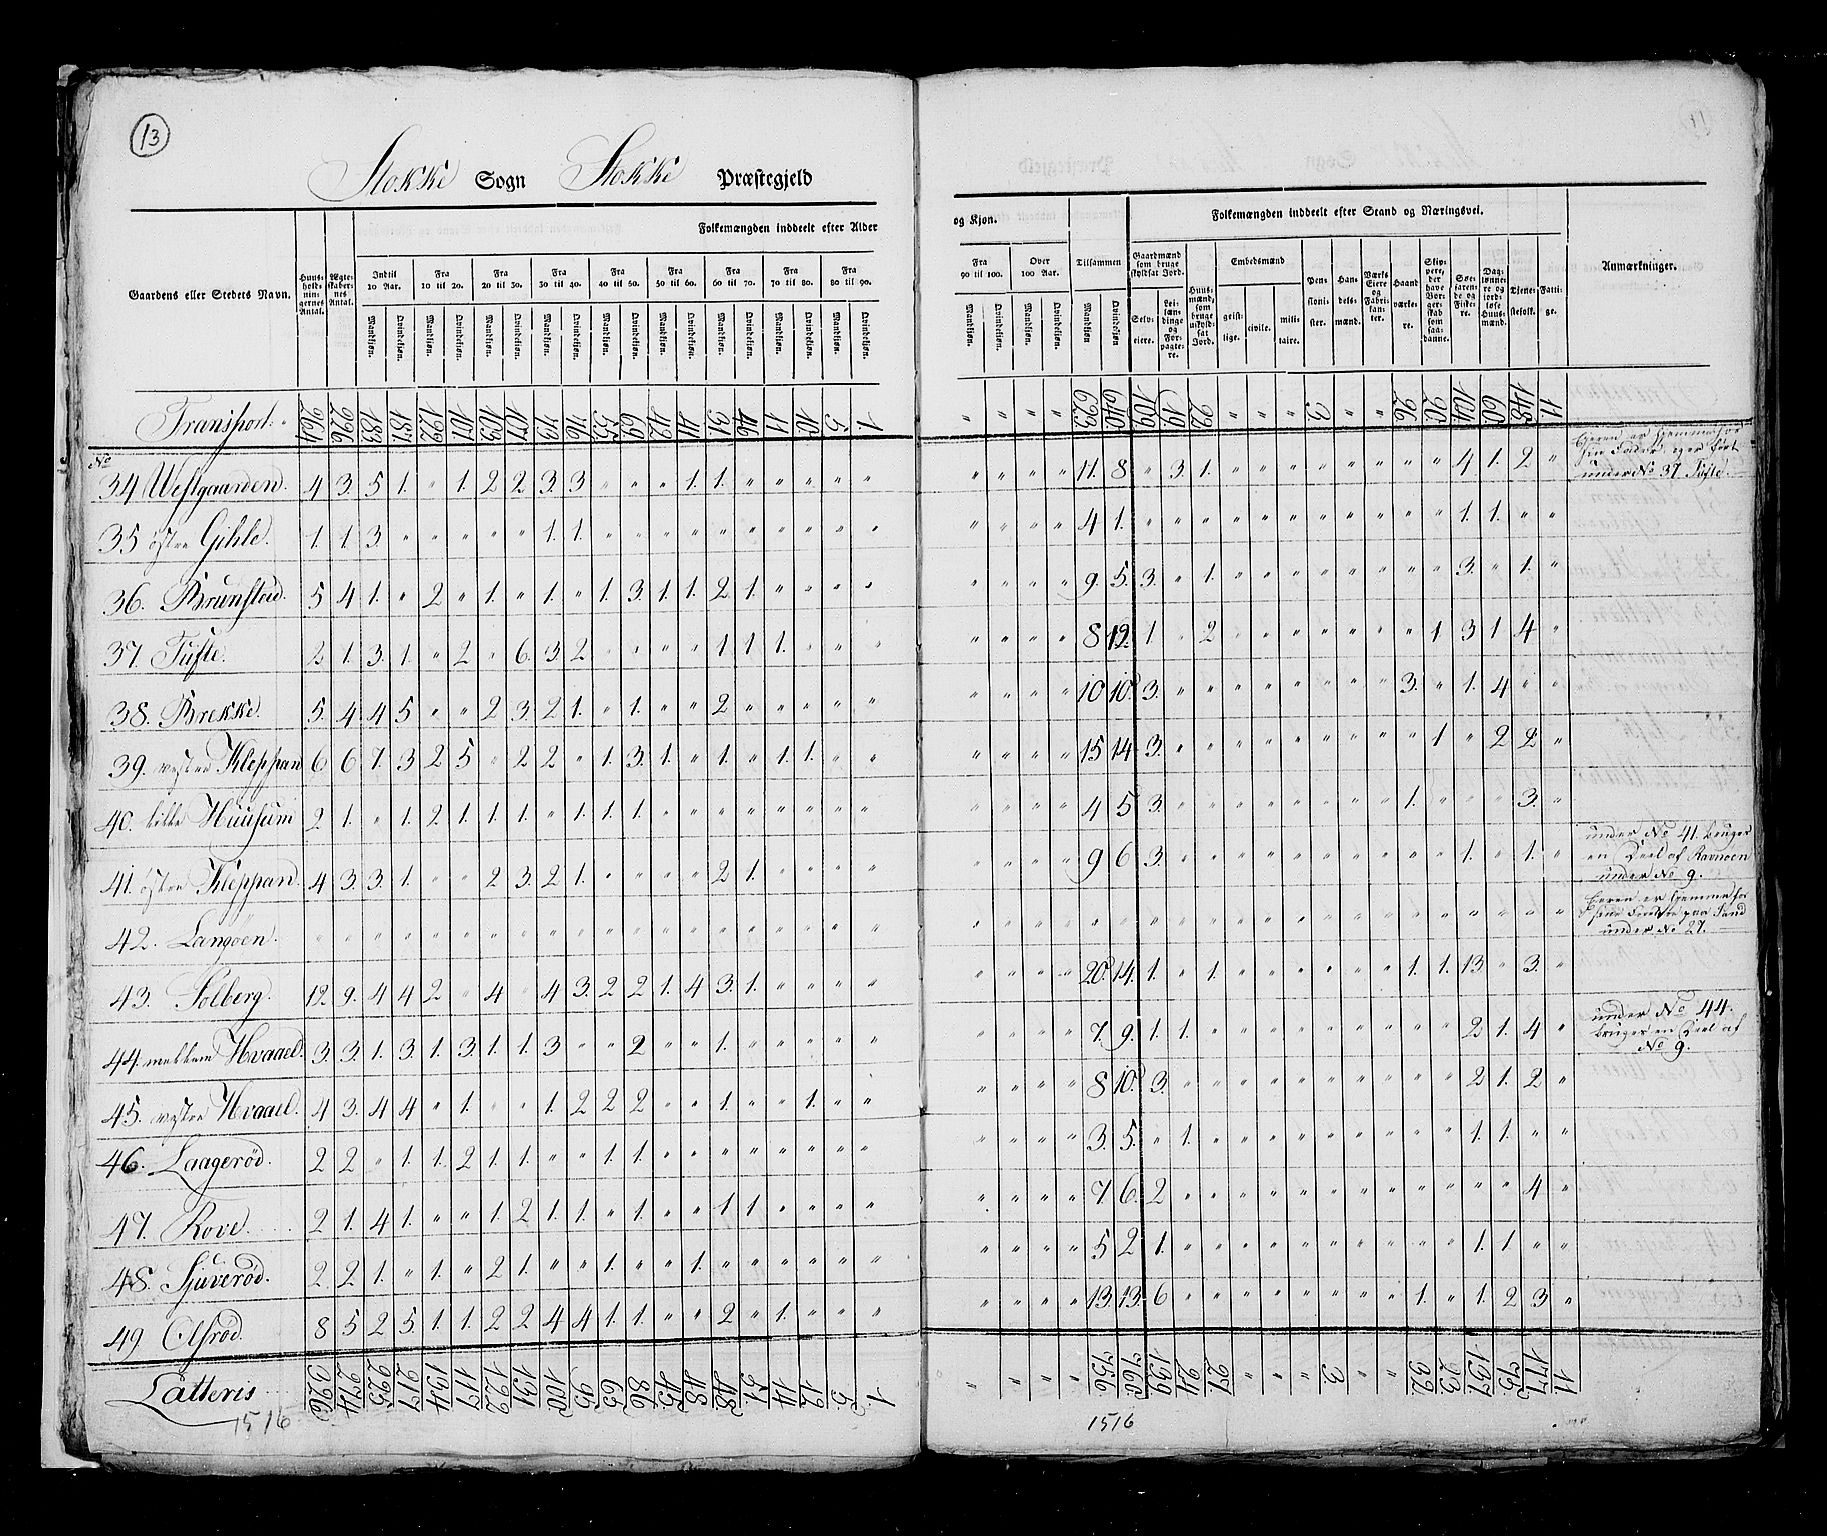 13
Stokke Sogn Stokke Præstegjeld
Gaardens eller Stedets Navn.
Huusholdningernes Antal.
Ægteskabernes Antal.
Folkemængden inddeelt efter Alder
og Kjøn.
Indtil 10 Aar.
Fra 10 til 20.
Fra 20 til 30.
Fra 30 til 40.
Fra 40 til 50.
Fra 50 til 60.
Fra 60 til 70.
Fra 70 til 80.
Fra 80 til 90.
Fra 90 til 100.
Over 100 Aar.
Tilsammen
Mandkjøn. Qvindekjøn.
Folkemængden inddeelt efter Stand og Næringsvei.
Gaardmænd som bruge skyldsat Jord.
Selveiere.
Leilændinge og Forpagtere.
Huusmænd, som bruge uskyldsat Jord.
Embedsmænd
geistlige.
civile.
militaire.
Pensionister.
Handelsmænd.
Værks Eiere og Fabrikanter.
Haandværkere.
Søefarende og Fiskere.
Daglønnere og jordløse Huusmænd.
Tjenestefolk.
Fattige.
Anmærkninger.
Transport. 264 226 183 187 122 101 103 107 73 76 55 69 42 41 31 46 11 10 5 1. " " " " 623 640 109 19 22 " " " 3 " " 26 20 104 60 148 11
No
34 Westgaarden. 4 3. 5 1. " 1. 2 2 3. 3 " " " 1. 1. " " " " " " " " " 11. 8 " 3. 1. " " " " " " " " 4 1. 2 "
under No 37 Tufte.
35 østre Gihle. 1. 1. 3. " " " " " 1. 1. " " " " " " " " " " " " " " 4 1. " " " " " " " " " " " 1. 1. " "
36. Brunstad. 5 4 1. " 2 " 1. " 1. " 1. 3. 1. 1. 2 1. " " " " " " " " 9. 5. 3. " 1. " " " " " " " " 3. " 1. "
37. Tufte. 2 1. 3. 1. " 2 " 6. 3. 2 " " " " 1 1 1. " " " " " " " 8 12. 1 " 2 " " " " " " " 1 3 1 4 "
38. Brekke. 5. 4 4 5 " " 2 3. 2 1. " 1. " " 2 " " " " " " " " " 10 10. 3. " " " " " " " " 3. " 1. 4 " "
39. vestre Kleppan 6 6 7. 3 2 5 " 2 2 " 1. 3. 1. " 1. " 1. 1. " " " " " " 15 14 3. " " " " " " " " " 1 " 2 2 "
40. lille Huusum 2 1. " 1. 2 1. 1. 1. " 1. 1. 1. " " " " " " " " " " " " 4 5 3. " " " " " " " " 1. " " " 3. "
41. østre Kleppan. 4 3. 3. 1. " " 2 3. 2 1. " " " " 2 1. " " " " " " " " 9 6 3. " " " " " " " " " " 1. " 1. "
under No 41. bruger
en Deel af Ravnøen
under No 9.
42. Langøen. " " " " " " " " " " " " " " " " " " " " " " " " " " " " " " " " " " " " " " " " "
under No 27.
43. Solberg. 12. 9. 4 4 2 " 4 " 4 3. 2 2 1. 4 3. 1. " " " " " " " " 20. 14. 1. " 1. " " " " " " 1. 1. 13 " 3. "
44. mellem Hvaael. 3. 3. 1. 3. 1. 3. 1. 1. 3 " " 2 " " 1. " " " " " " " " " 7. 9. 1. 1. " " " " " " " " " 2 1. 4 "
under No 44.
bruger en Deel af
No 9.
45. vestre Hvaael. 4 3. 4 4 " 1. " " 1. 2 2 2 " " 1. " " 1. " " " " " " 8 10. 3. " " " " " " " " " " 2 1. 2 "
46. Laagerød. 2 2 " 1. 1. 2 1. 1. " " 1. 1. " " " " " " " " " " " " 3. 5. " 1. " " " " " " " " " 1. 1. " "
47. Rove. 2 1. 4 1. " " 1. 2 1. 1. " 1. " " 1 1. " " " " " " " " 7. 6. 2 " " " " " " " " " " " " 4 "
48. Sjuverød. 2. 2 1. " 1. " 2 1. " " 1. " " 1. " " " " " " " " " " 5 2 1. " " " " " " " " " " 1. 1. " "
49 Olsrød. 8 5 2 5. 1. 1. 2 2 4 4 1. 1. " " 2 " 1. " " " " " " " 13. 13. 6 " " " " " " " " 1. " 1. 2 3. "
Latteris 326 274 225 217 134 117 122 131 100 95 65 86 45 48 48 51 14 12 5 1. " " " " 756 760 139 24 27 " " " 3 " " 32 23 137 75 177 11
1516
1516